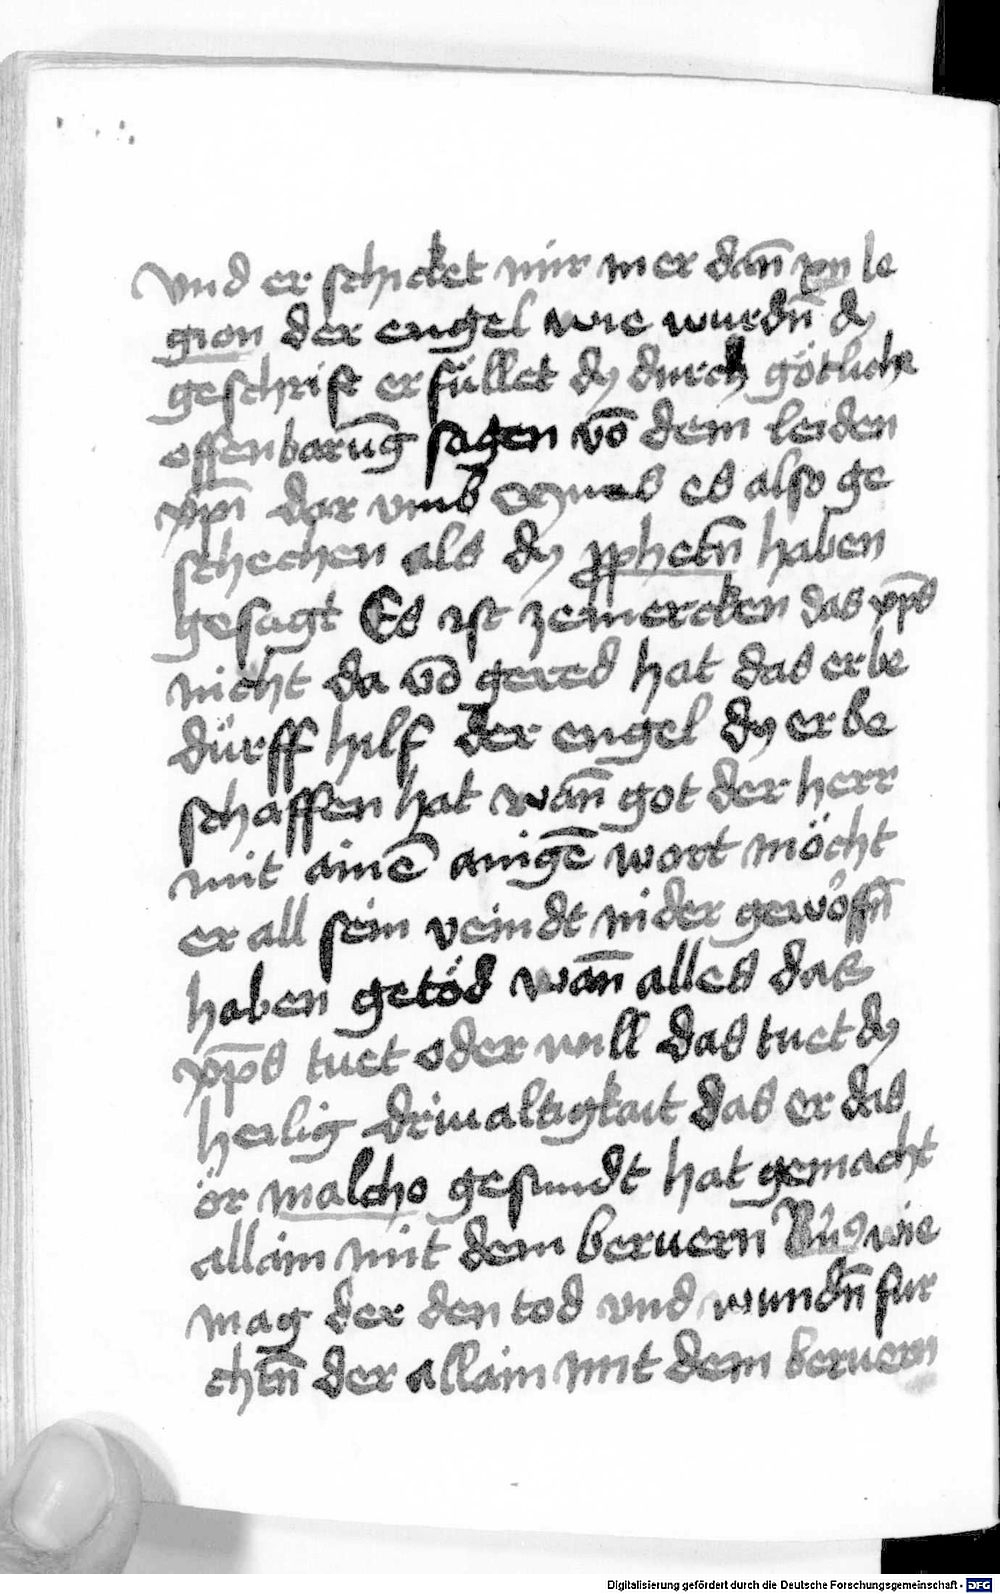 vnd er schicket mir mer dan̄ xij le
gion der engel wie wurdn̄ dy
geschrift erfüllet dy durch götliche
offenbarūg sagen vō dem leiden
xp̄i dar vmb es also ge
schechen als dy pphetn̄ haben
gesagt Es ist zemercken das xp̄s
nicht da vō gered hat das er be
dürff hilf der engel dy er be
schaffen hat wan̄ got der herr
mit ainē anigē wort möcht
er all sein veindt nider geworffn̄
haben getöd wan̄ alles das
xp̄s tuet oder will das tuet dy
heilig driualtigkait das er das
ör malcho gesundt hat gemacht
allain mit dem beruern wie
mag der den tod vnd wundn̄ fur
chtn̄ der allain mit dem beruern
Digitalisierung gefördert durch die Deutsche Forschungsgemeinschaft - DFG